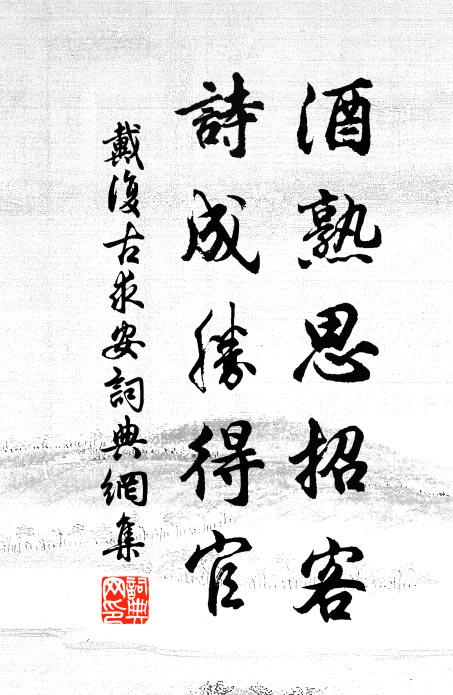 酒熟思招客
詩成勝得官
戴復古求安詞典網集
詞典网印